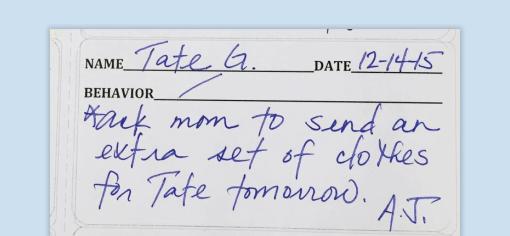 NAME Tate G. DATE 12-14-15
BEHAVIOR /
*Ask mom to send an
extra set of clothes
for Tate tomorrow.
A.J.